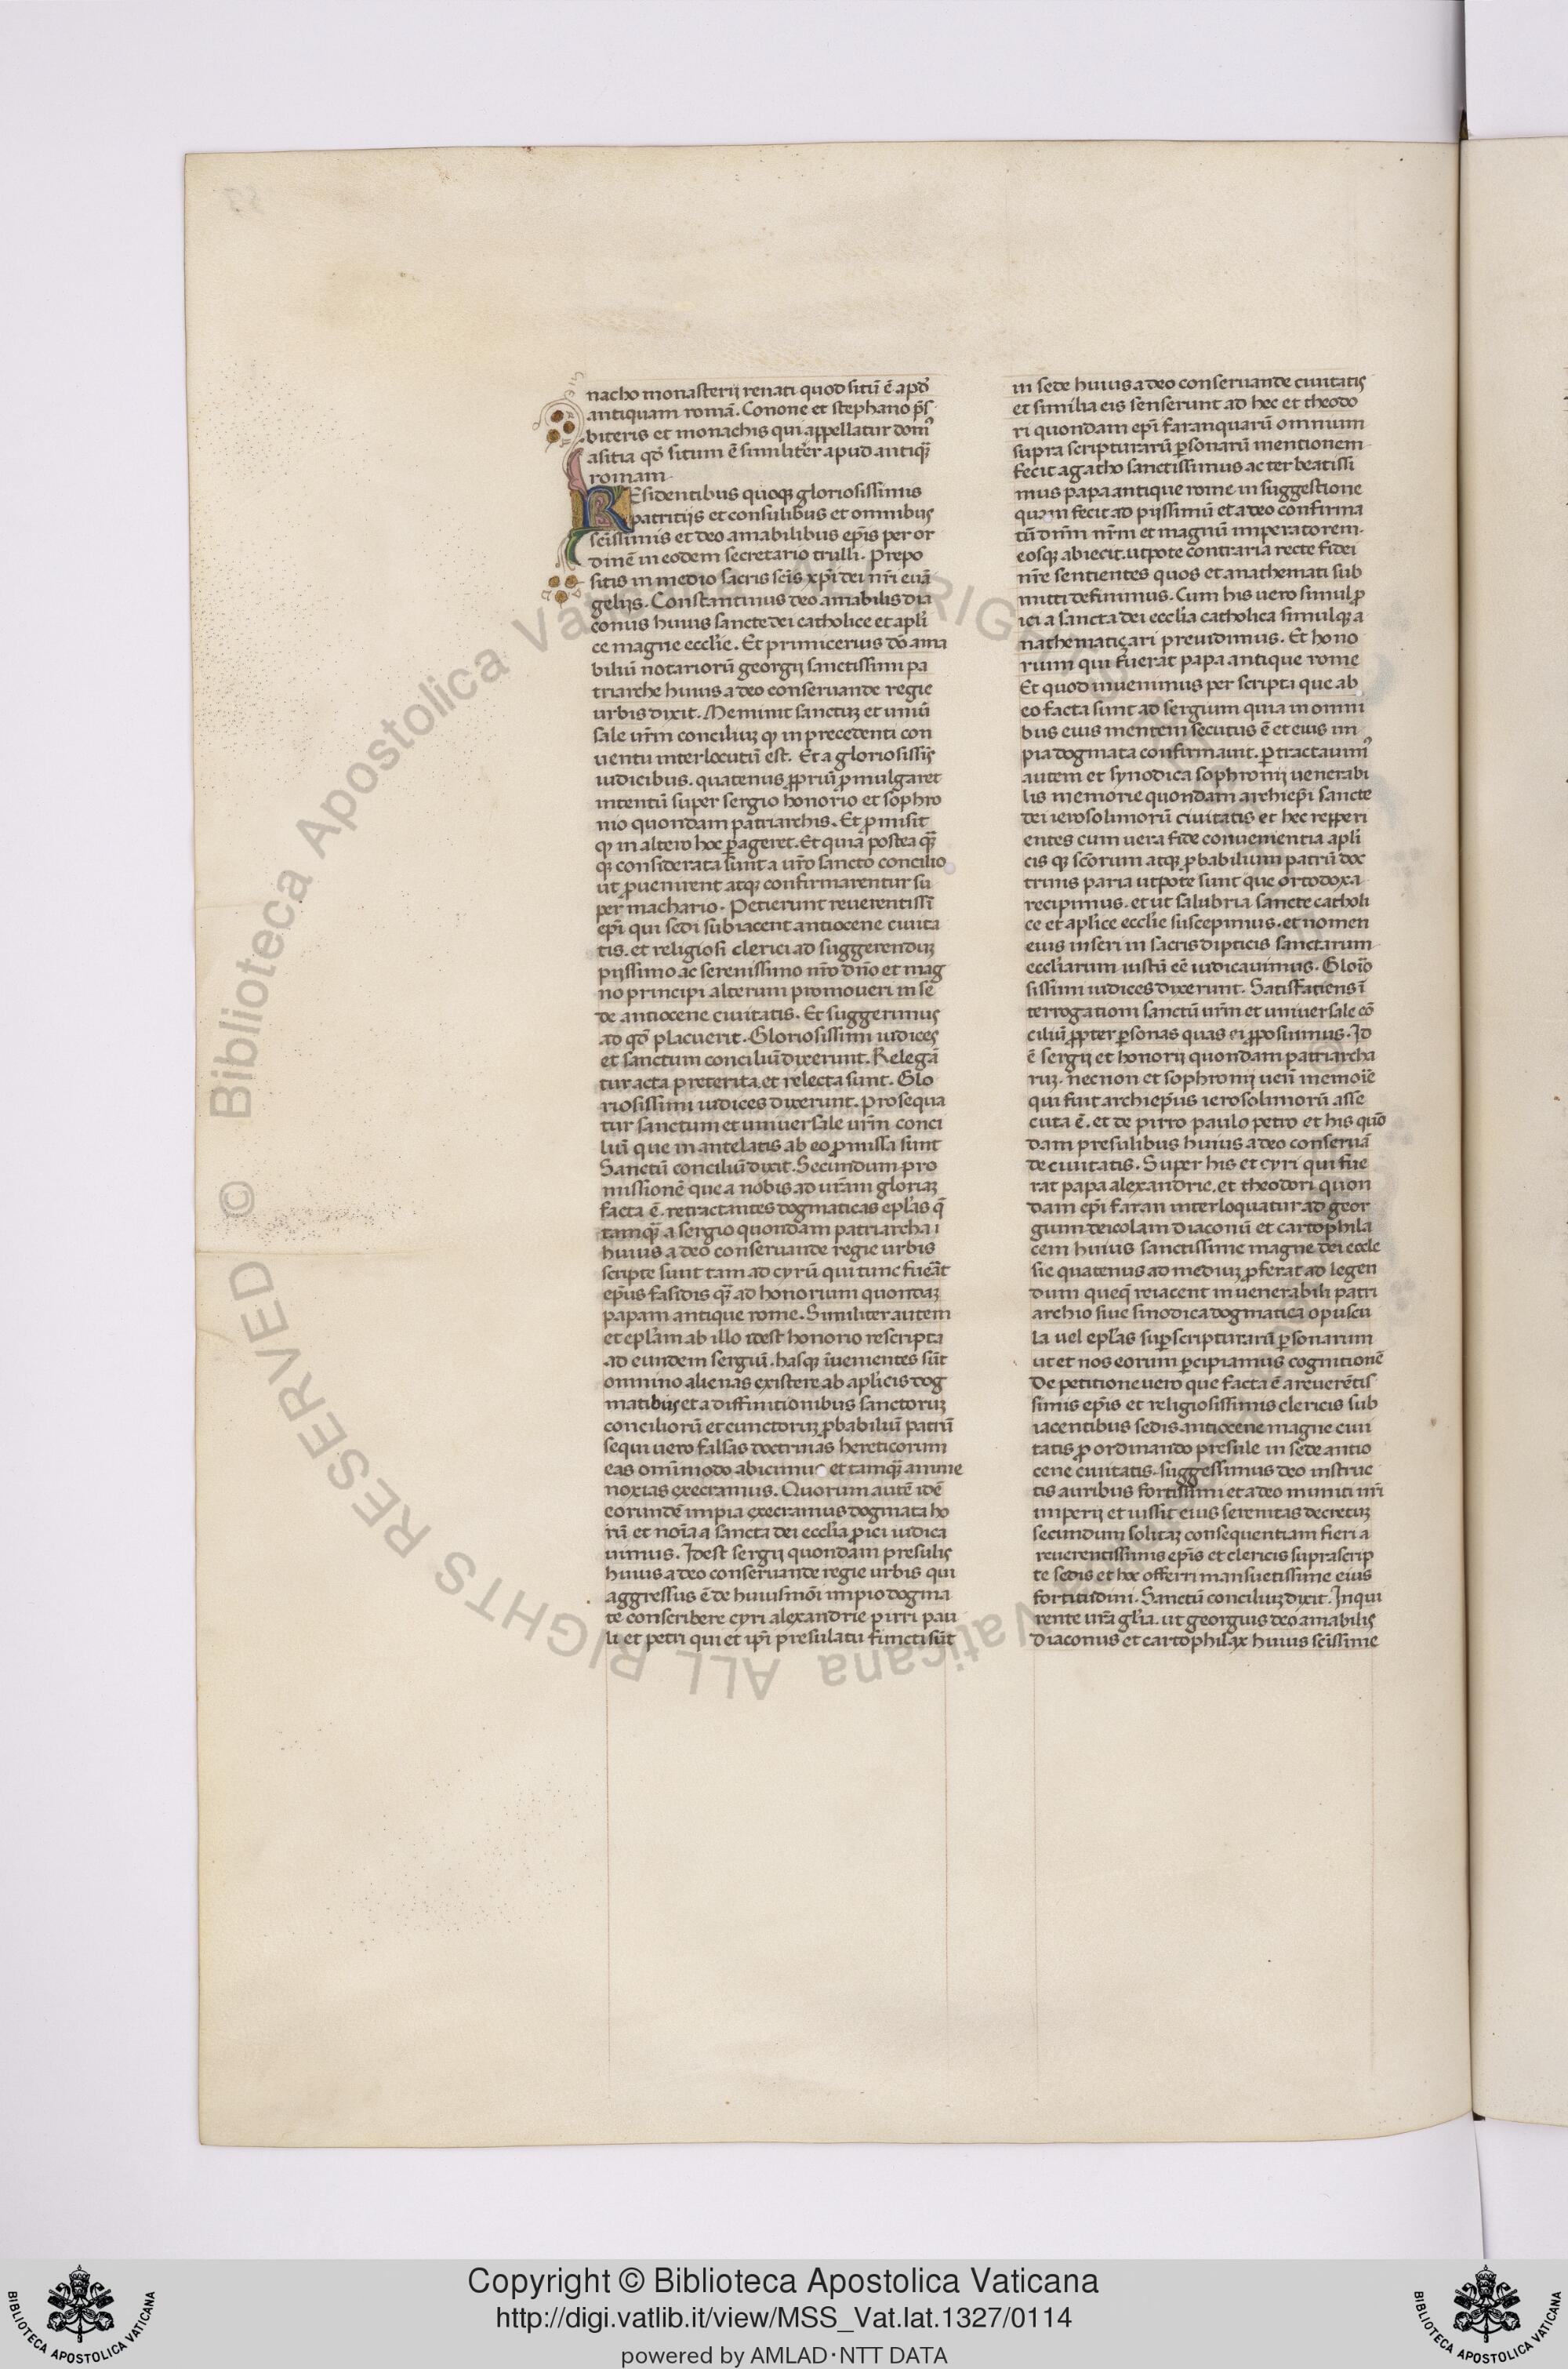 nacho monasterij renati quod sitū ē apd̄
antiquam romā. Conone et stephano p̄s
biteris et monachis qui appellatur dom᾿
asitia qd̄ situm ē similiter apud antiq̄
romam
REsidentibus quoqʒ gloriosissimis
patritijs et consulibus et omnibus
sc̄issimis et deo amabilibus ep̄is per or
dinē in eodem secretario trulli. Prepo
sitis in medio sacris sc̄is xp̄i dei nr̄i euā
gelijs. Constantinus deo amabilis dia
conus huius sancte dei catholice et apl̄i
ce magne eccl̄ie. Et primicerius dō ama
biliū notariorū georgij sanctissimi pa
triarche huius a deo conseruande regie
urbis dixit. Meminit sanctuʒ et uniū
sale ur̄m conciliuʒ qꝫ in precedenti con
uentu interlocutū est. Et a gloriosissis̄
iudicibus. quatenus ꝓpriū ꝓmulgaret
intentū super sergio honorio et sophro
nio quondam patriarchis. Et ꝓmisit
qꝫ in altero hoc ꝑageret. Et quia postea q̄
qʒ considerata sunt a ur̄o sancto concilio
ut ꝓuenirent atqʒ confirmarentur su
per machario. Petierunt reuerentissī
ep̄i qui sedi subiacent antiocene ciuita
tis. et religiosi clerici ad suggerenduʒ
pijssimo ac serenissimo nr̄o dn̄o et mag
no principi alterum promoueri in se
de antiocene ciuitatis. Et suggerimus
ad qd̄ placuerit. Gloriosissimi iudices
et sanctum conciliū dixerunt. Relegā
tur acta preterita. et relecta sunt. Glo
riosissimi iudices dixerunt. Prosequa
tur sanctum et uniuersale ur̄m conci
liū que in antelatis ab eo ꝓmissa sunt
Sanctū conciliū dixit. Secundum pro
missionē que a nobis ad ur̄am gloriaʒ
facta ē. retractantes dogmaticas epl̄as q̄
tamq̄ a sergio quondam patriarcha i
huius a deo conseruande regie urbis
scripte sunt tam ad cyrū qui tunc fuerat
ep̄us fasidis q̄ ad honorium quondaʒ
papam antique rome. Similiter autem
et epl̄am ab illo idest honorio rescripta
ad eundem sergiū. hasqʒ īuenientes sūt
omnino alienas existere ab apl̄icis dog
matibus et a diffinitionibus sanctoruʒ
conciliorū et cunctoruʒ ꝓbabiliū patrū
sequi uero falsas doctrinas hereticorum
eas omnimodo abicimus et tamq̄ anime
noxias execramus. Quorum autē idē
eorundē impia execramus dogmata ho
rū et noīa a sancta dei eccl̄ia ꝓici iudica
uimus. Idest sergij quondam presulis
huius a deo conseruande regie urbis qui
aggressus ē de huiusmōi impio dogma
te conscribere cyri alexandrie pirri pau
li et petri qui et ip̄i presulatu functi sūt
in sede huius a deo conseruande ciuitatis
et similia eis senserunt ad hec et theodo
ri quondam ep̄i faran quarū omnium
supra scripturarū ꝑsonarū mentionem
fecit agatho sanctissimus ac ter beatissi
mus papa antique rome in suggestione
quam fecit ad pijssimū et a deo confirma
tū dn̄m nr̄m et magnū imperatorem.
eosqʒ abiecit. utpote contraria recte fidei
nr̄e sentientes quos et anathemati sub
mitti definimus. Cum his uero simul ꝓ
ici a sancta dei eccl̄ia catholica simulqʒ a
nathematiçari preuidimus. Et hono
rium qui fuerat papa antique rome
Et quod inuenimus per scripta que ab
eo facta sunt ad sergium quia in omni
bus eius mentem secutus ē et eius im
pia dogmata confirmauit. ꝑtractauim᾿
autem et synodica sophronij uenerabi
lis memorie quondam archiep̄i sancte
dei ierosolimorū ciuitatis et hec repperi
entes cum uera fide conuenientia apl̄i
cis qʒ sc̄orum atqʒ ꝓbabilium patrū doc
trinis paria utpote sunt que ortodoxa
recipimus. et ut salubria sancte catholi
ce et apl̄ice eccl̄ie suscepimus. et nomen
eius inseri in sacris dipticis sanctarum
eccl̄iarum iustū eē iudicauimus. Glorīo
sissimi iudices dixerunt. Satisfatiens ī
terrogationi sanctū ur̄m et uniuersale cō
ciliū ꝓpter ꝑsonas quas ei ꝓposuimus. Id
ē sergij et honorij quondam patriarcha
ruʒ. necnon et sophronij uen̄ memoīe
qui fuit archiep̄us ierosolimorū asse
cuta ē. et de pirro paulo petro et his quō
dam presulibus huius a deo conseruā
de ciuitatis. Super his et cyri qui fue
rat papa alexandrie. et theodori quon
dam ep̄i faran interloquatur ad geor
gium deicolam diaconū et cartophila
cem huius sanctissime magne dei eccle
sie quatenus ad mediuʒ ꝓferat ad legen
dum queq̄ reiacent in uenerabili patri
archio siue sinodica dogmatica opuscu
la uel epl̄as suꝑscripturarū ꝑsonarum
ut et nos eorum ꝑcipiamus cognitionē
De petitione uero que facta ē a reuerētis
simis ep̄is et religiosissimis clericis sub
iacentibus sedis antiocene magne ciui
tatis ꝓ ordinando presule in sede antio
cene ciuitatis. suggessimus deo instruc
tis auribus fortissimi et a deo muniti nr̄i
imperij et iussit eius serenitas decretuʒ
secundum solitaʒ consequentiam fieri a
reuerentissimis ep̄is et clericis suprascrip
te sedis et hoc offerri mansuetissime eius
fortitudini. Sanctū conciliuʒ dixit. Inqui
rente ur̄a gl̄ia. ut georgius deo amabilis
diaconus et cartophilax huius sc̄issime
© Biblioteca Apostolica Vaticana ALL RIGHTS RESERVED
Copyright © Biblioteca Apostolica Vaticana
http://digi.vatlib.it/view/MSS_Vat.lat.1327/0114
powered by AMLAD·NTT DATA
BIBLIOTECA APOSTOLICA VATICANA
BIBLIOTECA APOSTOLICA VATICANA